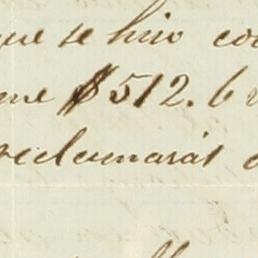 que se hizo co
me $512.6
reclamarás